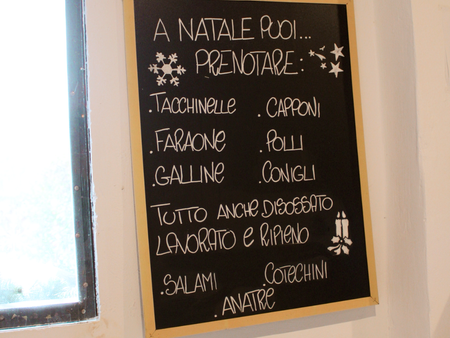 A NATALE PUOI...
PRENOTARE:
.TACCHINELLE .CAPPONI
.FARAONE .POLLI
.GALLINE .CONIGLI
TUTTO ANCHE DISOSSATO
LAVORATO E RIPIENO
.SALAMI .COTECHINI
.ANATRE